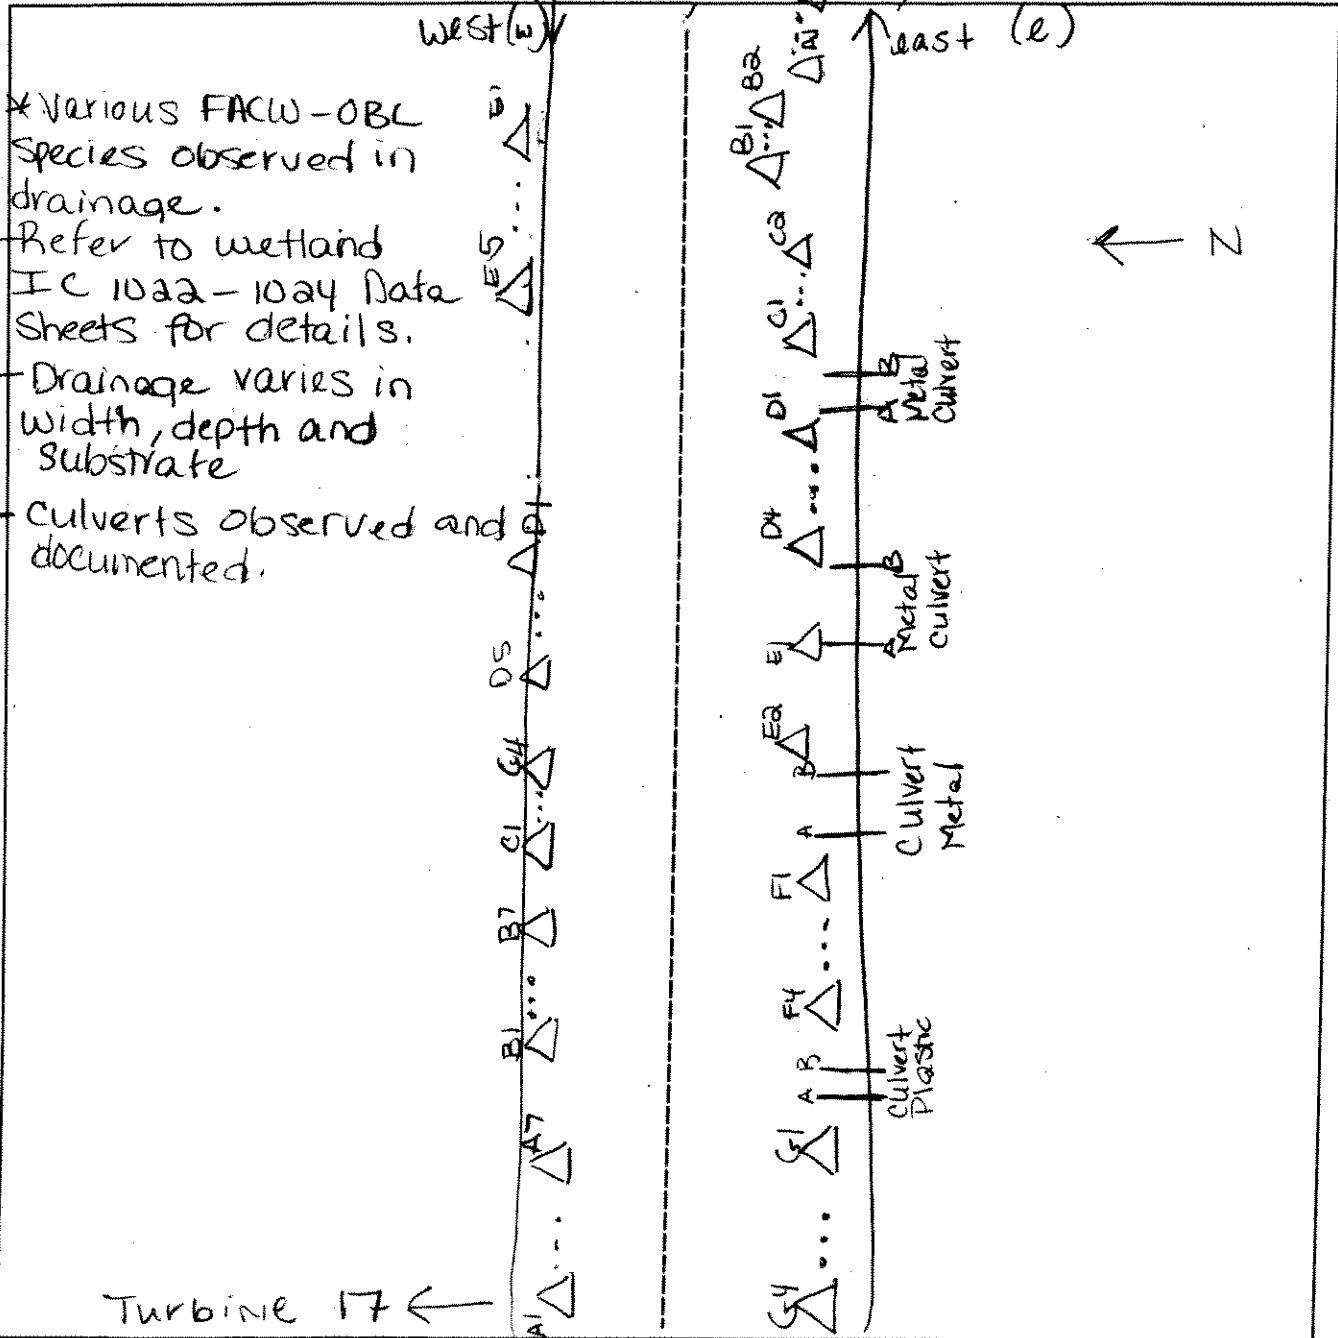 west (w)
east (e)
* Various FACW-OBL
species observed in
drainage.
- Refer to wetland
IC 1022-1024 Data
Sheets for details.
- Drainage varies in
width, depth and
substrate
- Culverts observed and
documented.
E1
E5
D1
D5
C4
C1
B7
B1
A7
A1
Turbine 17
A1
B2
B1
C2
C1
B
A
Metal
Culvert
D1
D4
B
A
Metal
Culvert
E1
E2
B
A
Culvert
Metal
F1
F4
B
A
Culvert
Plastic
G1
G4
N